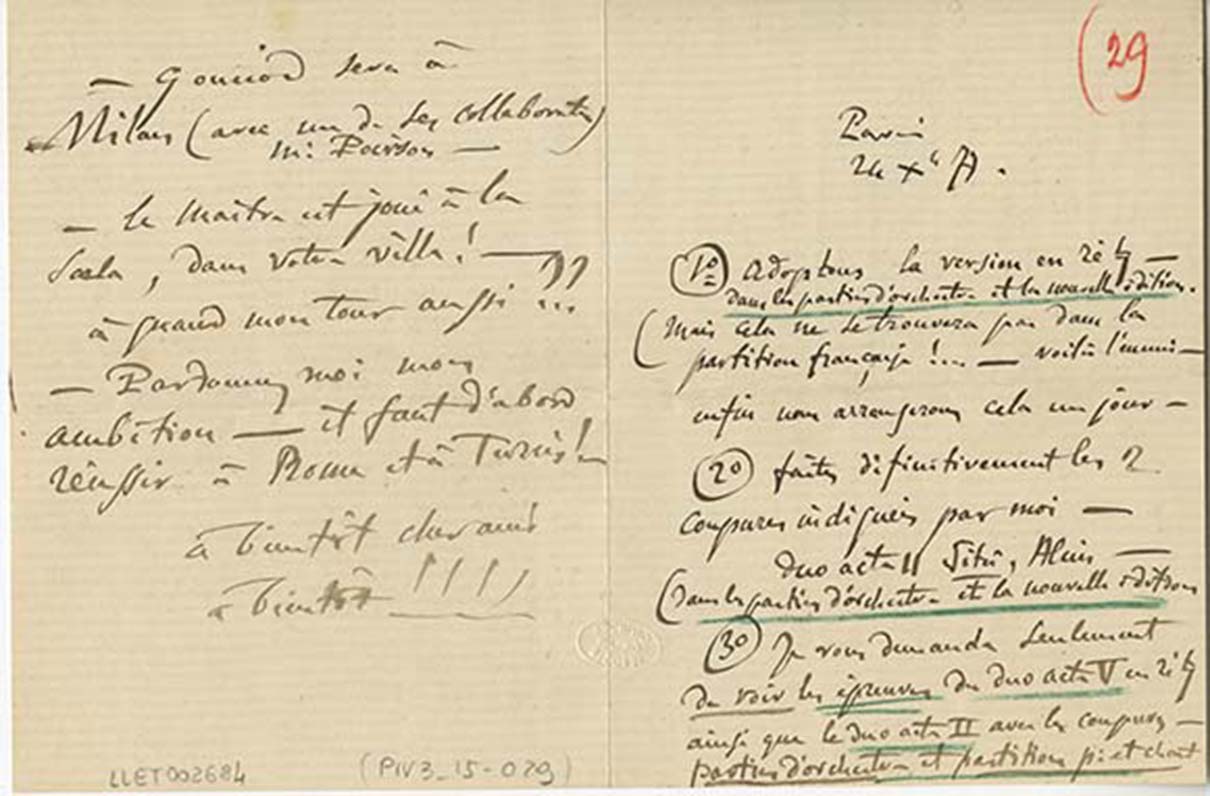 — Gounod sera à
Milan (avec un de ses collaborateurs)
Mr. Poirson —
— le Maître est joué à la
Scala, dans votre ville! —
à quand mon tour aussi ??...
— Pardonnez moi mon
ambition — il faut d'abord
réussir à Rome et à Turin! —
à bientôt cher ami!
à bientôt !!!!
LLET002684
(PIV3_15-029)
(29
Paris
24 Xb 77.
1º Adoptons la version en ré ♮ —
dans les parties d'orchestre et la nouvelle édition.
(Mais cela ne se trouvera pas dans la
partition française!... — voilà l'ennui —
enfin nous arrangerons cela un jour —
2º faites définitivement les 2
coupures indiquées par moi —
duo acte II Sitâ, Alim —
(dans les parties d'orchestre et la nouvelle édition
3º Je vous demande seulement
de voir les épreuves du duo acte V en ré ♮
ainsi que le duo acte II avec les coupures —
parties d'orchestre et partition p: et chant